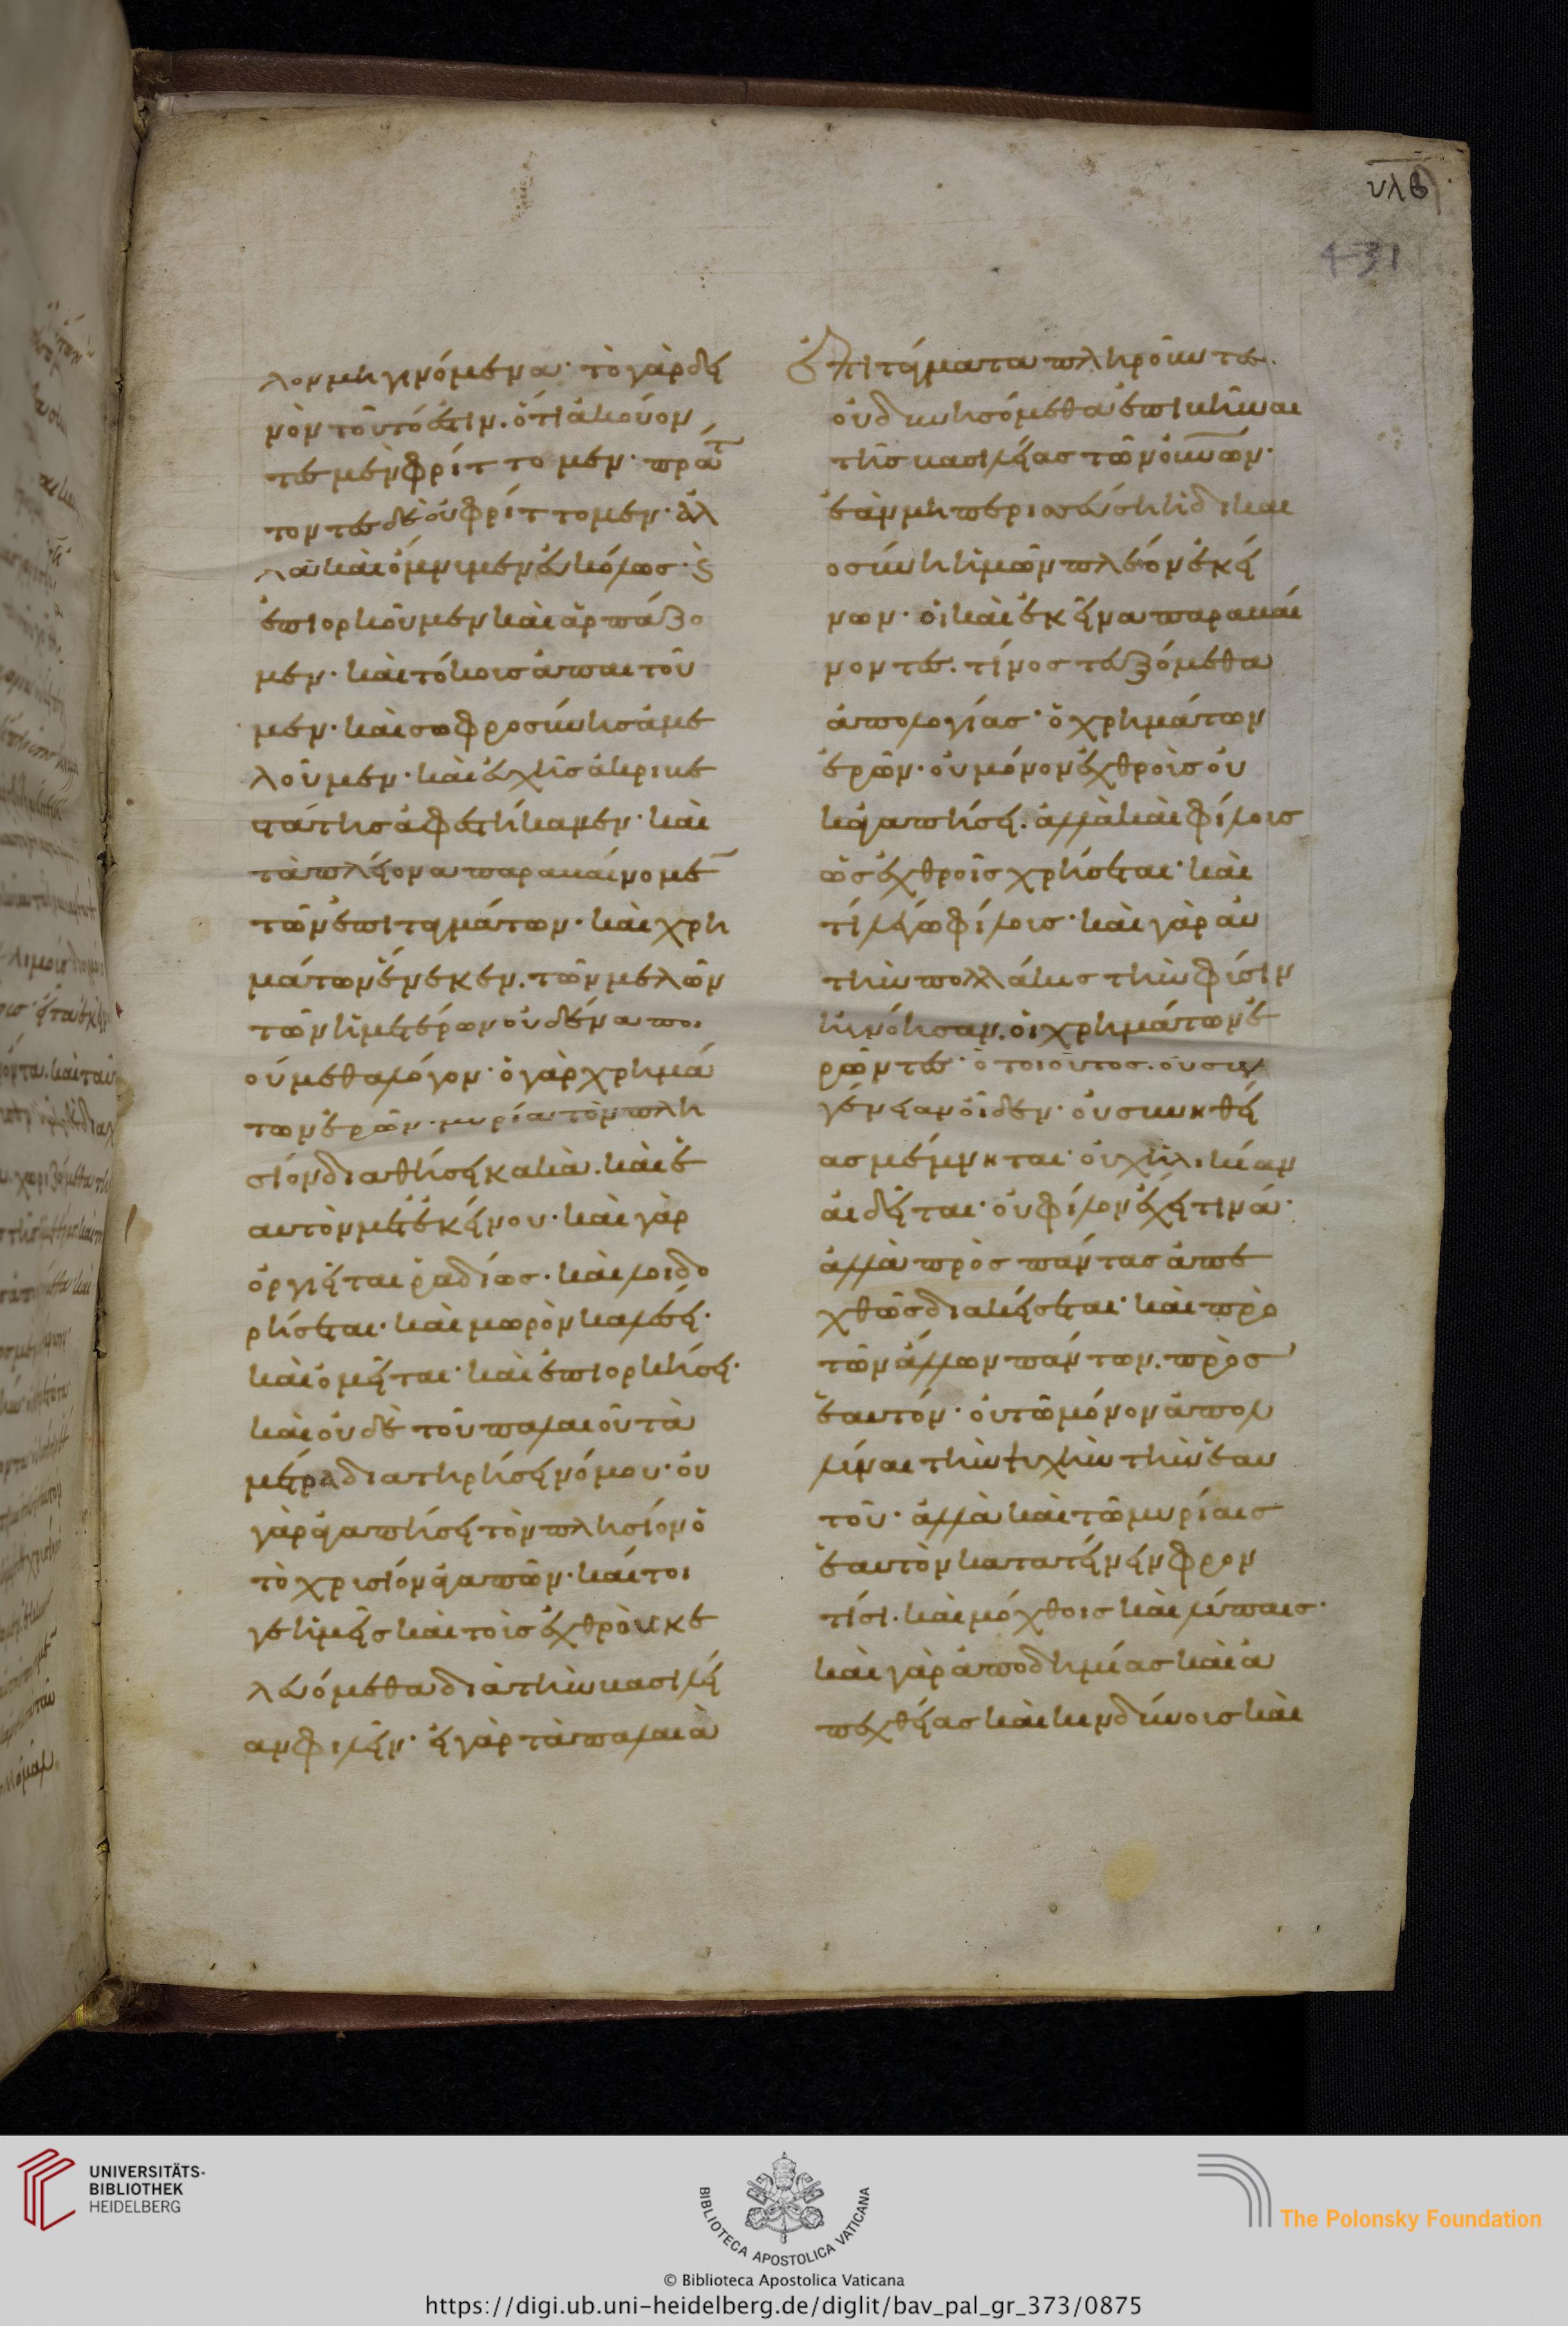 υλβ
431
λον μὴ γινόμενα· τὸ γὰρ δει
νὸν τοῦτό ἐστιν. ὅτι ἀκούον
τες μὲν φρίττομεν· πράτ
τοντες δὲ οὐ φρίττομεν· ἀλ
λὰ καὶ ὄμνυμεν εὐκόλως· καὶ
ἐπιορκοῦμεν καὶ ἁρπάζο
μεν· καὶ τόκοις ἀπαιτοῦ
μεν· καὶ σωφροσύνης ἀμε
λοῦμεν· καὶ εὐχῆς ἀκριβε
στάτης ἀφεστήκαμεν· καὶ
τὰ πλείονα παραβαίνομεν
τῶν ἐπιταγμάτων· καὶ χρη
μάτων ἕνεκεν. τῶν μελῶν
τῶν ἡμετέρων οὐδένα ποι
ούμεθα λόγον· ὁ γὰρ χρημά
των ἐρῶν· μυρία τὸν πλη
σίον διαθήσει κακὰ. καὶ ἑ
αυτὸν μετ' ἐκείνου· καὶ γὰρ
ὀργιεῖται ῥαδίως· καὶ λοιδο
ρήσεται· καὶ μωρὸν καλέσει·
καὶ ὀμεῖται· καὶ ἐπιορκήσει·
καὶ οὐδὲ τοῦ παλαιοῦ τὰ
μέτρα διατηρήσει νόμου· οὐ
γὰρ ἀγαπήσει τὸν πλησίον ὁ
τὸ χρυσίον ἀγαπῶν· καίτοι
γε ἡμεῖς καὶ τοὺς ἐχθροὺς κε
λευόμεθα διὰ τὴν βασιλεί
αν φιλεῖν· εἰ γὰρ τὰ παλαιὰ
ἐπιτάγματα πληροῦντες.
οὐ δυνησόμεθα ἐπιβῆναι
τῆς βασιλείας τῶν οὐνῶν·
ἐὰν μὴ περισσεύσῃ ἡ δικαι
οσύνη ἡμῶν πλέον ἐκεί
νων· οἱ καὶ ἐκεῖνα παραβαί
νοντες. τίνος τευξόμεθα
ἀπολογίας· ὁ χρημάτων
ἐρῶν· οὐ μόνον ἐχθροὺς οὐ
κ ἀγαπήσει. ἀλλὰ καὶ φίλοις
ὡς ἐχθροῖς χρήσεται· καὶ
τί λέγω φίλοις· καὶ γὰρ αὐ
τὴν πολλάκις τὴν φύσιν
ἠγνόησαν. οἱ χρημάτων ἐ
ρῶντες· ὁ τοιοῦτος. οὐ συγ
γένειαν οἶδεν· οὐ συνηθεί
ας μέμνηται· οὐχ ἡλικίαν
αἰδεῖται· οὐ φίλον ἔχει τινά·
ἀλλὰ πρὸς πάντας ἀπε
χθῶς διακείσεται· καὶ πρὸ
τῶν ἄλλων πάντων. πρὸς
ἑαυτόν· οὐ τῶ μόνον ἀπολ
λύναι τὴν ψυχὴν τὴν ἑαυ
τοῦ· ἀλλὰ καὶ τῶ μυρίαις
ἑαυτὸν κατατείνειν φρον
τίσι. καὶ μόχθοις καὶ λύπαις·
καὶ γὰρ ἀποδημίας καὶ ἀ
πεχθείας καὶ κινδύνοις καὶ
UNIVERSITÄTS-
BIBLIOTHEK
HEIDELBERG
BIBLIOTECA APOSTOLICA VATICANA
The Polonsky Foundation
© Biblioteca Apostolica Vaticana
https://digi.ub.uni-heidelberg.de/diglit/bav_pal_gr_373/0875